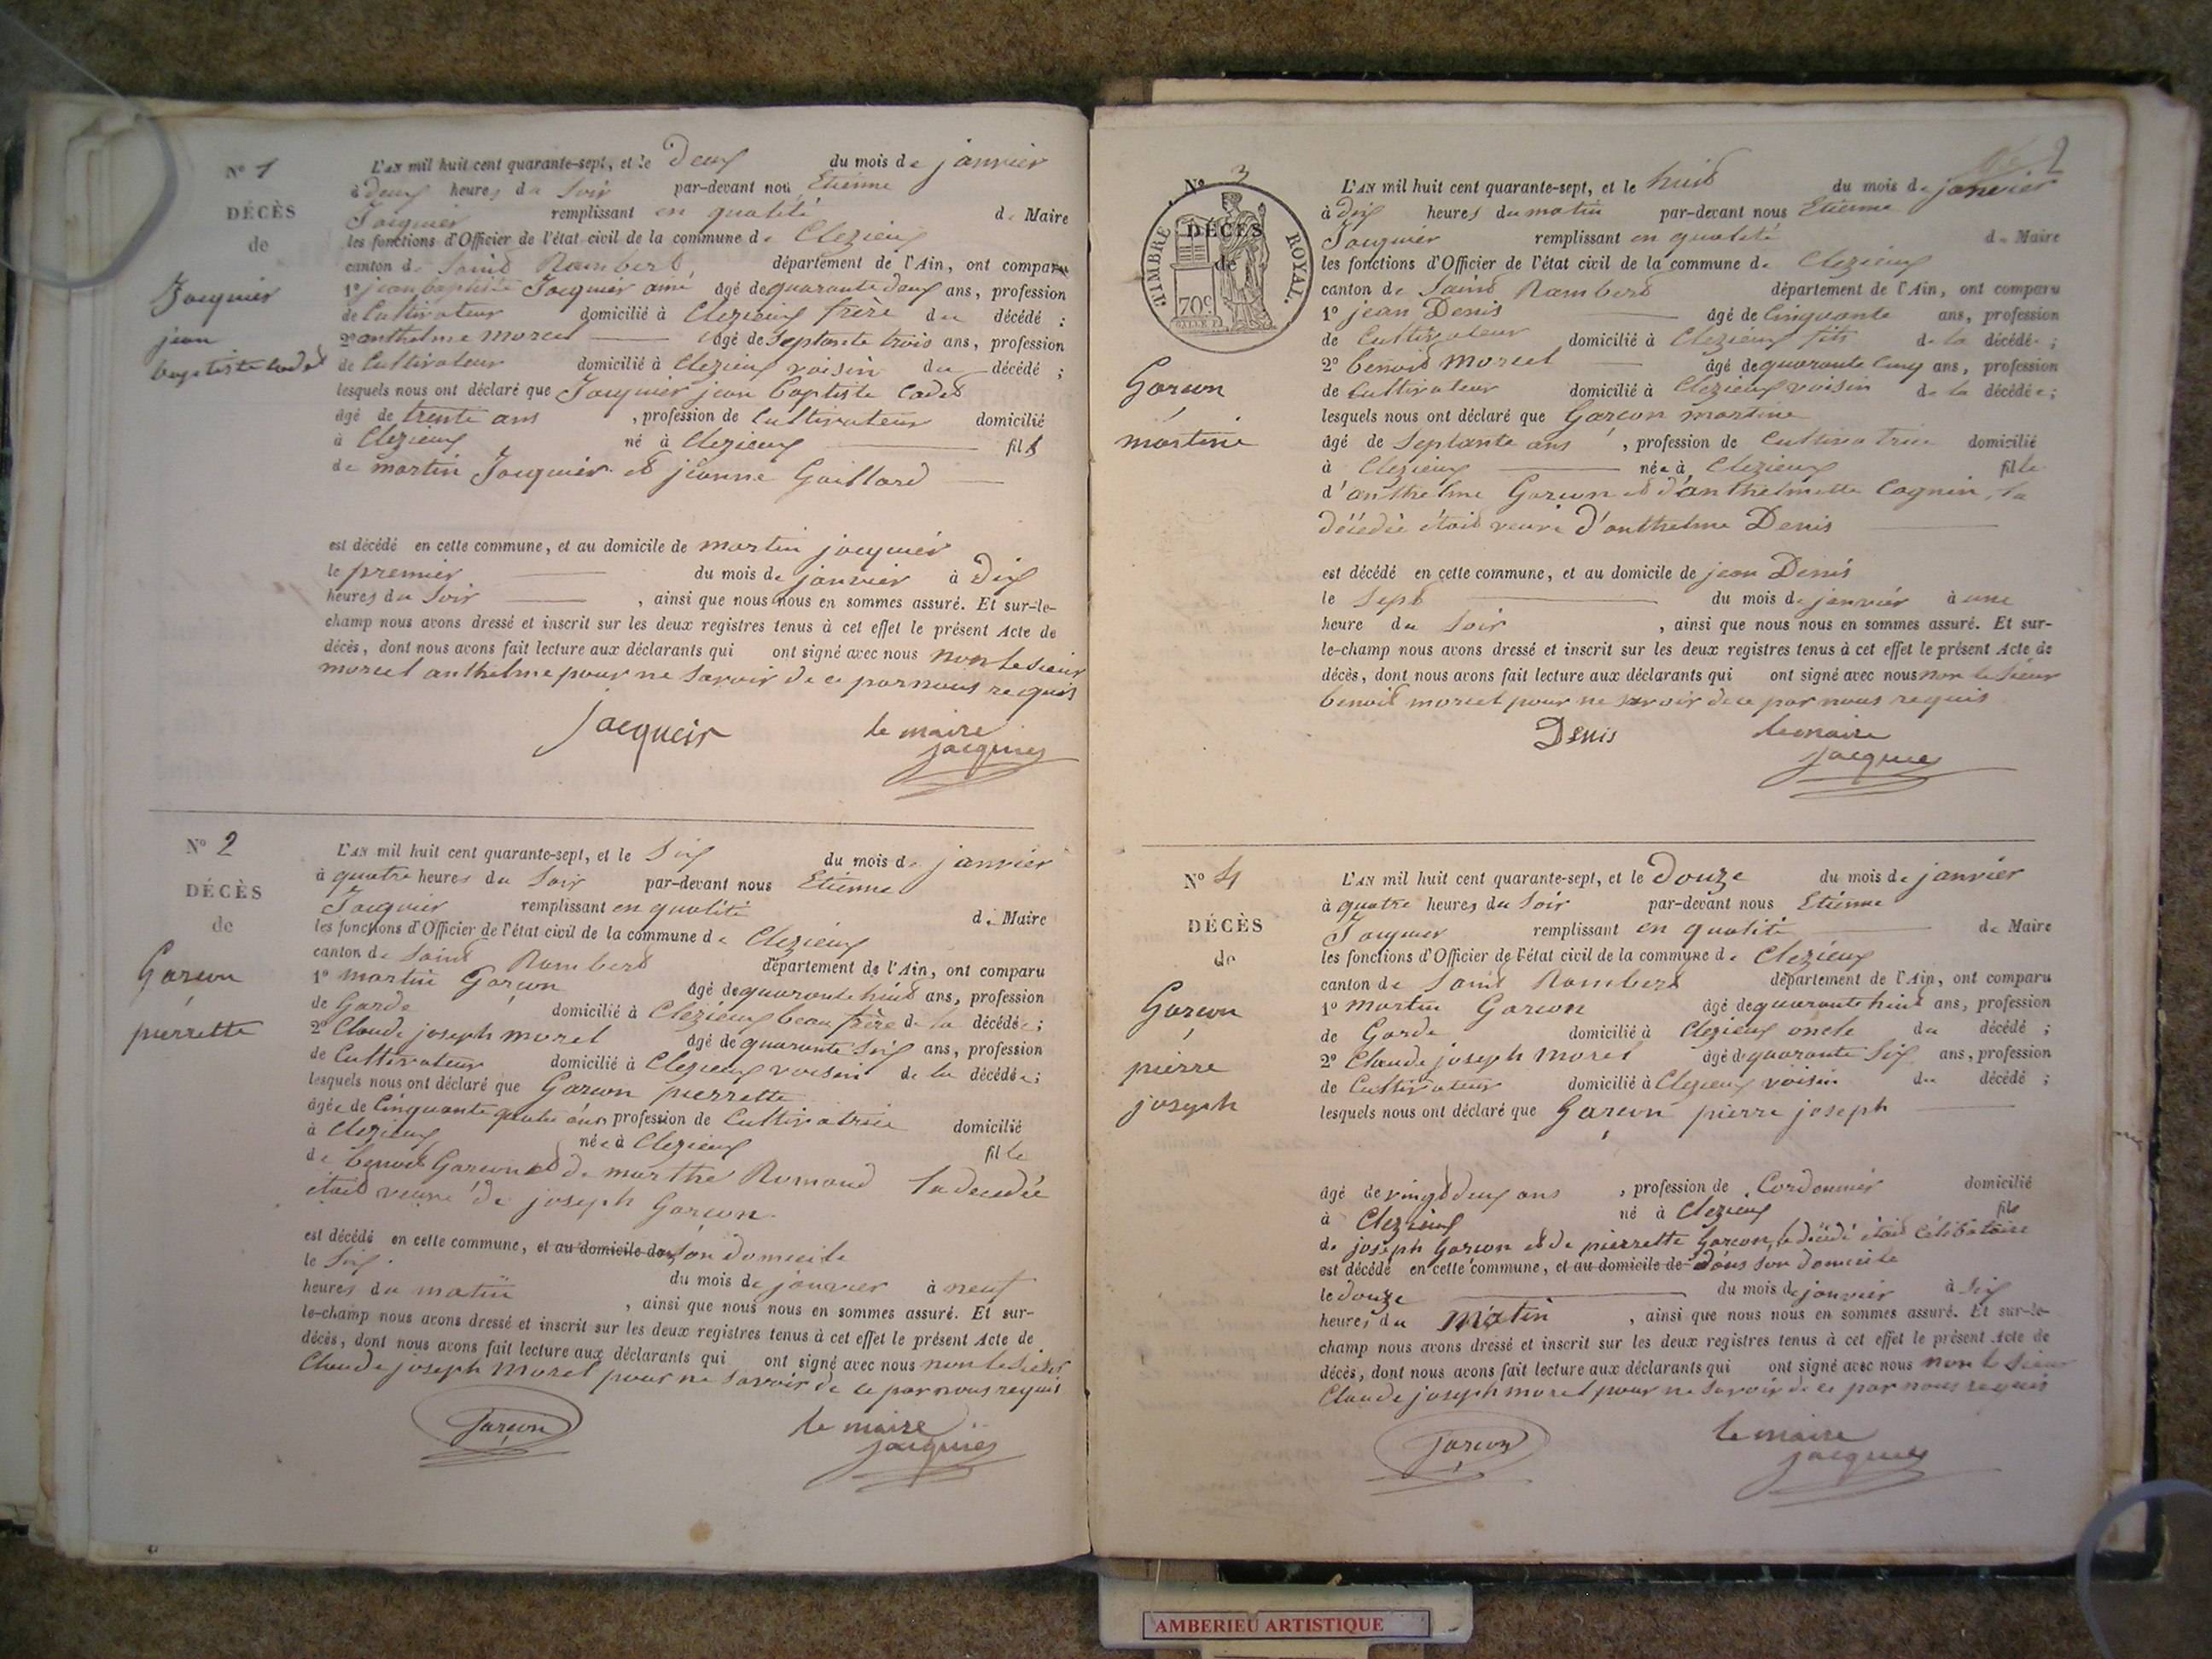 N° 1
DÉCÈS
de
Jacquier
jean
baptiste cadet
L'AN mil huit cent quarante-sept, et le Deux du mois de janvier
à deux heures du Soir par-devant nou Etienne
Jacquier remplissant en qualité de Maire
les fonctions d'Officier de l'état civil de la commune de Clezieux
canton de Saint Rambert département de l'Ain, ont comparu
1° jean baptiste Jacquier ainé âgé de quarante deux ans, profession
de Cultivateur domicilié à Clezieux frère du décédé ;
2° anthelme morcel âgé de Septante trois ans, profession
de Cultivateur domicilié à Clezieux voisin du décédé ;
lesquels nous ont déclaré que Jacquier jean baptiste Cadet
âgé de trente ans , profession de Cultivateur domicilié
à Clezieux né à Clezieux fils
de martin Jacquier et jeanne Gaillard
est décédé en cette commune, et au domicile de martin jacquier
le premier du mois de janvier à Dix
heures du Soir , ainsi que nous nous en sommes assuré. Et sur-le-
champ nous avons dressé et inscrit sur les deux registres tenus à cet effet le présent Acte de
décès, dont nous avons fait lecture aux déclarants qui ont signé avec nous non le sieur
morcel anthelme pour ne Savoir de ce par nous requis
jacqueir le maire
jacquier
N° 2
DÉCÈS
de
Garçon
pierrette
L'AN mil huit cent quarante-sept, et le Six du mois de janvier
à quatre heures du Soir par-devant nous Etienne
Jacquier remplissant en qualité de Maire
les fonctions d'Officier de l'état civil de la commune de Clezieux
canton de Saint Rambert département de l'Ain, ont comparu
1° martin Garçon âgé de quarante huit ans, profession
de Garde domicilié à Clezieux beau frère de la décédée ;
2° Claude joseph morel âgé de quarante Six ans, profession
de Cultivateur domicilié à Clezieux voisin de la décédée ;
lesquels nous ont déclaré que Garçon pierrette
âgée de Cinquante quatre ans profession de Cultivatrice domicilié
à Clezieux née à Clezieux fille
de benoit Garçon et de marthe Romand la décédée
était veuve de joseph Garçon
est décédé en cette commune, et au domicile de son domicile
le Six du mois de janvier à neuf
heures du matin , ainsi que nous nous en sommes assuré. Et sur-
le-champ nous avons dressé et inscrit sur les deux registres tenus à cet effet le présent Acte de
décès, dont nous avons fait lecture aux déclarants qui ont signé avec nous non le sieur
Claude joseph morel pour ne Savoir de ce par nous requis
Garçon le maire
jacquier
2
N° 3
TIMBRE ROYAL.
70c.
DÉCÈS
de
Garçon
martine
L'AN mil huit cent quarante-sept, et le huit du mois de janvier
à dix heures du matin par-devant nous Etienne
Jacquier remplissant en qualité de Maire
les fonctions d'Officier de l'état civil de la commune de Clezieux
canton de Saint Rambert département de l'Ain, ont comparu
1° jean Denis âgé de Cinquante ans, profession
de Cultivateur domicilié à Clezieux fils de la décédée ;
2° benoit morcel âgé de quarante Cinq ans, profession
de Cultivateur domicilié à Clezieux voisin de la décédée ;
lesquels nous ont déclaré que Garçon martine
âgé de Septante ans , profession de Cultivatrice domicilié
à Clezieux née à Clezieux fille
d'anthelme Garçon et d'anthelmette Cognin, la
décédée était veuve d'anthelme Denis
est décédé en cette commune, et au domicile de jean Denis
le Sept du mois de janvier à une
heure du Soir , ainsi que nous nous en sommes assuré. Et sur-
le-champ nous avons dressé et inscrit sur les deux registres tenus à cet effet le présent Acte de
décès, dont nous avons fait lecture aux déclarants qui ont signé avec nous non le Sieur
benoit morcel pour ne savoir de ce par nous requis
Denis le maire
jacquier
N° 4
DÉCÈS
de
Garçon
pierre
joseph
L'AN mil huit cent quarante-sept, et le Douze du mois de janvier
à quatre heures du Soir par-devant nous Etienne
Jacquier remplissant en qualité de Maire
les fonctions d'Officier de l'état civil de la commune de Clezieux
canton de Saint Rambert département de l'Ain, ont comparu
1° martin Garçon âgé de quarante huit ans, profession
de Garde domicilié à Clezieux oncle du décédé ;
2° Claude joseph morel âgé de quarante Six ans, profession
de Cultivateur domicilié à Clezieux voisin du décédé ;
lesquels nous ont déclaré que Garçon pierre joseph
âgé de vingt deux ans , profession de Cordonnier domicilié
à Clezieux né à Clezieux fils
de joseph Garçon et de pierrette Garçon, le décédé était Célibataire
est décédé en cette commune, et au domicile de dans son domicile
le douze du mois de janvier à Six
heures du matin , ainsi que nous nous en sommes assuré. Et sur-le-
champ nous avons dressé et inscrit sur les deux registres tenus à cet effet le présent Acte de
décès, dont nous avons fait lecture aux déclarants qui ont signé avec nous non le Sieur
Claude joseph morel pour ne Savoir de ce par nous requis
Garçon le maire
jacquier
AMBERIEU ARTISTIQUE